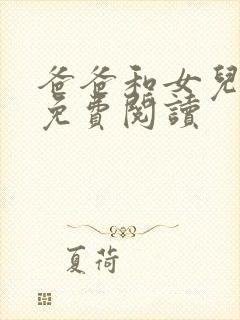 爸爸和女兒
免費閱讀
夏荷